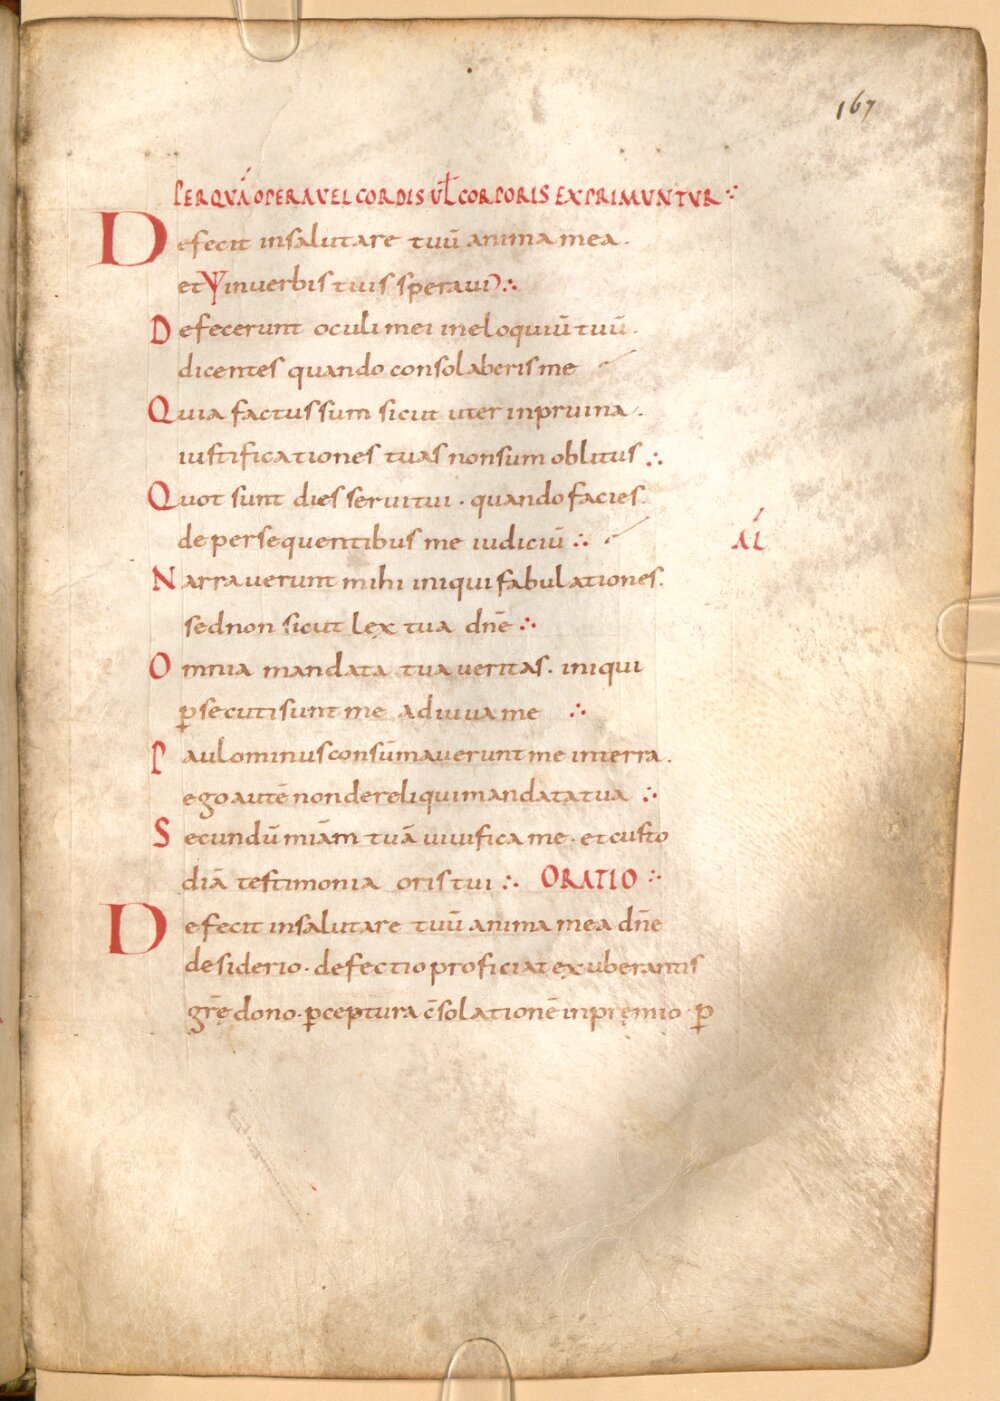 167
PER QUÁ OPERA VEL CORDIS Uł CORPORIS EXPRIMUNTUR ∴
Defecit insalutare tuū anima mea.
et Ψ inuerbis tuis speraui ∴
Defecerunt oculi mei ineloquiū tuū.
dicentes quando consolaberis me
Quia factus sum sicut uter inpruina.
iustificationes tuas nonsum oblitus ∴
Quot sunt dies serui tui. quando facies.
depersequentibus me iudiciū ∴
AĹ
Narrauerunt mihi iniqui fabulationes.
sednon sicut lex tua dnē ∴
Omnia mandata tua ueritas. iniqui
ꝑsecuti sunt me adiuua me ∴
Paulominus consūmauerunt me interra.
ego autē non dereliqui mandata tua ∴
Secundū miām tuā uiuifica me. et custo
diā testimonia oris tui ∴ ORATIO ∴
Defecit insalutare tuū anima mea dn̄e
desiderio. defectio proficiat exuberantis
gr̄ę dono. ꝑceptura c̄solationē inpremio ꝑ